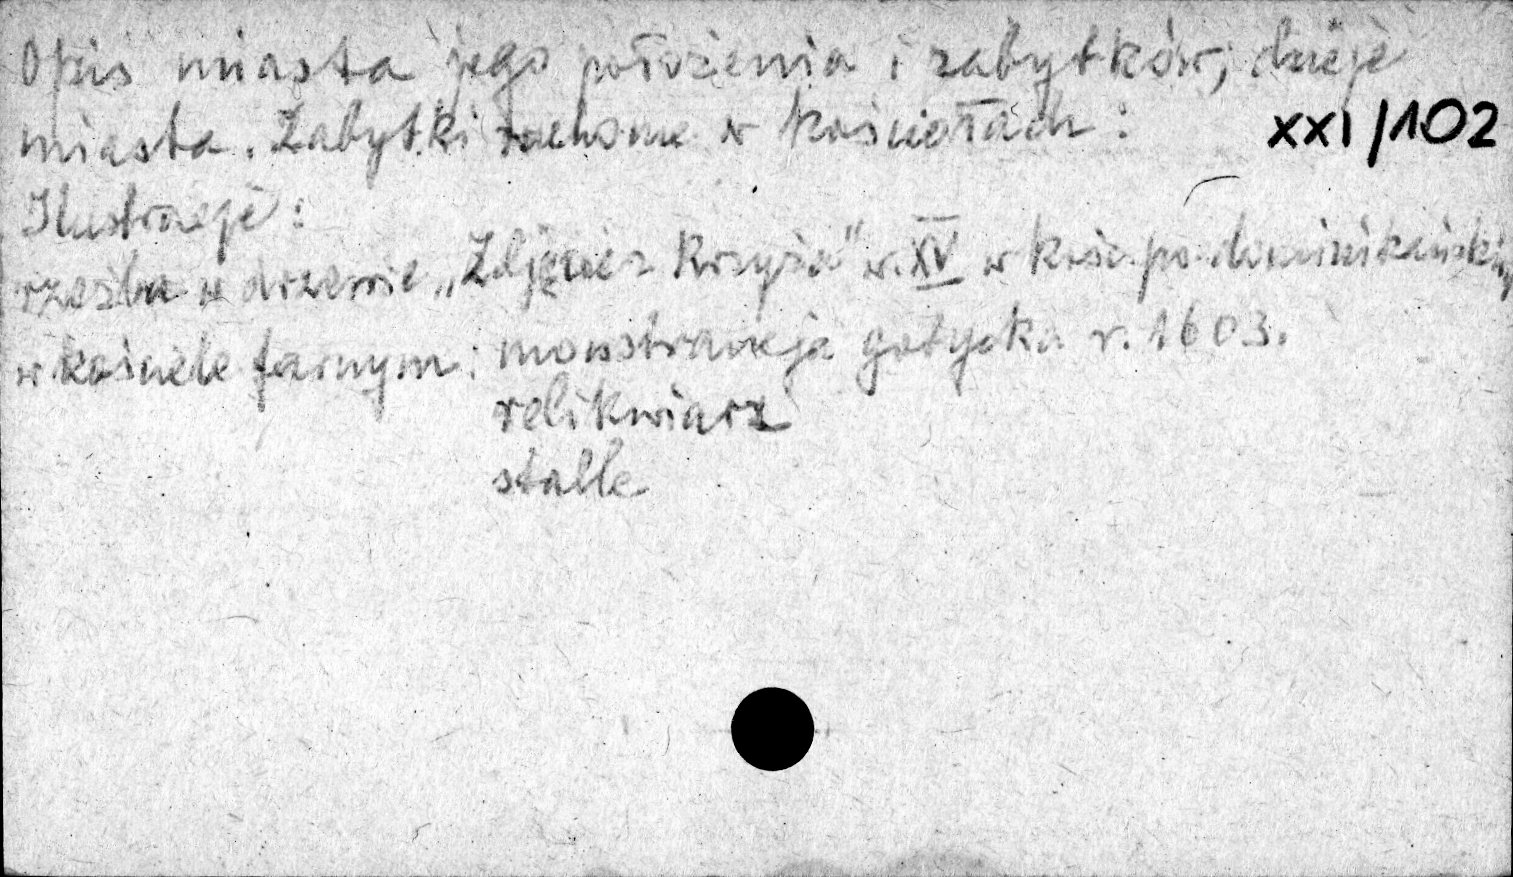 Opis miasta jego położenia i zabytków; dzieje
miasta. Zabytki ruchome w kościołach:
XXI/102
Ilustracje:
rzeźba w drzewie „Zdjęcie z Krzyża" w. XV w kośc. po dominikańskim
w kościele farnym: monstrancja gotycka r. 1603.
relikwiarz
stalle